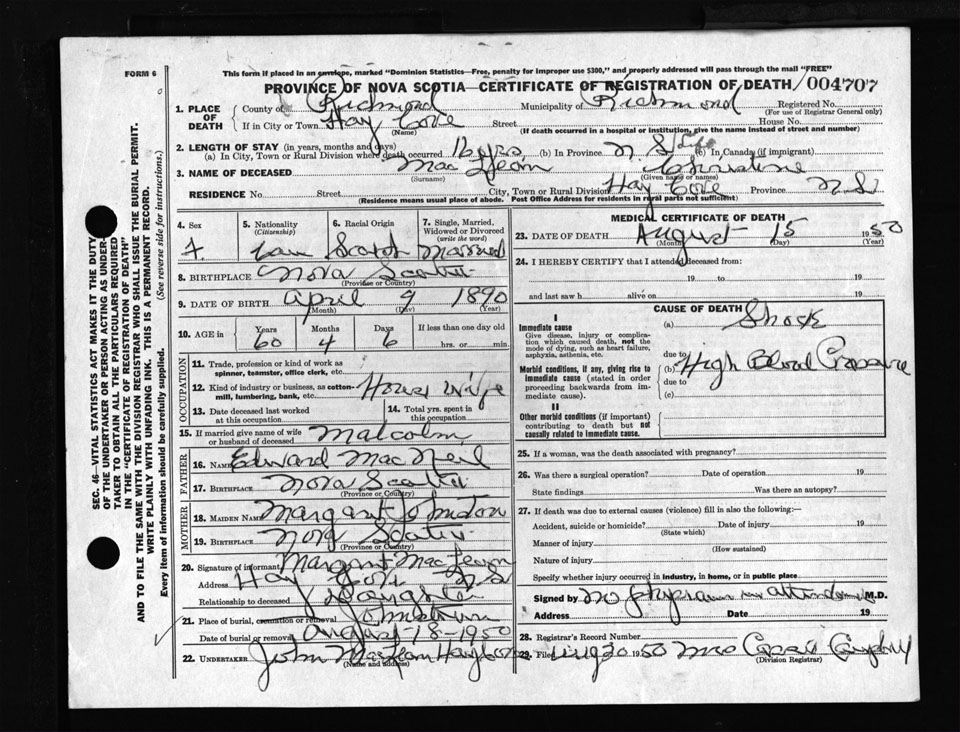 FORM 6
This form if placed in an envelope, marked "Dominion Statistics—Free, penalty for improper use $300," and properly addressed will pass through the mail "FREE"
PROVINCE OF NOVA SCOTIA—CERTIFICATE OF REGISTRATION OF DEATH / 004707
1. PLACE OF DEATH County of Richmond Municipality of Richmond Registered No.
(For use of Registrar General only)
If in City or Town Hay Cove Street House No.
(Name) (If death occurred in a hospital or institution, give the name instead of street and number)
2. LENGTH OF STAY (in years, months and days)
(a) In City, Town or Rural Division where death occurred 16 yrs (b) In Province N.S. Life (c) In Canada (if immigrant)
3. NAME OF DECEASED Christine
(Surname) (Given name or names)
RESIDENCE No. Street City, Town or Rural Division Hay Cove Province N.S.
(Residence means usual place of abode. Post Office Address for residents in rural parts not sufficient)
4. Sex F
5. Nationality (Citizenship) Can
6. Racial Origin Scotch
7. Single, Married, Widowed or Divorced (write the word) Married
8. BIRTHPLACE Nova Scotia
(Province or Country)
9. DATE OF BIRTH April 9 1890
(Month) (Day) (Year)
10. AGE in Years 60 Months 4 Days 6 If less than one day old hrs. or min.
OCCUPATION
11. Trade, profession or kind of work as spinner, teamster, office clerk, etc.
12. Kind of industry or business, as cotton-mill, lumbering, bank, etc. House Wife
13. Date deceased last worked at this occupation
14. Total yrs. spent in this occupation
15. If married give name of wife or husband of deceased Malcolm
FATHER
16. NAME Edward MacNeil
17. BIRTHPLACE Nova Scotia
(Province or Country)
MOTHER
18. MAIDEN NAME Margart Johnston
19. BIRTHPLACE Nova Scotia
(Province or Country)
20. Signature of informant Margart
Address Hay Cove N.S.
Relationship to deceased Daughter
21. Place of burial, cremation or removal Johnstown
Date of burial or removal August 18-1950
22. UNDERTAKER John
(Name and Address)
MEDICAL CERTIFICATE OF DEATH
23. DATE OF DEATH August 15 1950
(Month) (Day) (Year)
24. I HEREBY CERTIFY that I attended deceased from:
19 to 19
and last saw h alive on 19
CAUSE OF DEATH
I
Immediate cause
Give disease, injury or complication which caused death, not the mode of dying, such as heart failure, asphyxia, asthenia, etc.
(a) Shock
due to
Morbid conditions, if any, giving rise to immediate cause (stated in order proceeding backwards from immediate cause).
(b) High Blood Pressure
due to
(c)
II
Other morbid conditions (if important) contributing to death but not causally related to immediate cause.
25. If a woman, was the death associated with pregnancy?
26. Was there a surgical operation? Date of operation 19
State findings Was there an autopsy?
27. If death was due to external causes (violence) fill in also the following:—
Accident, suicide or homicide? Date of injury 19
(State which)
Manner of injury
(How sustained)
Nature of injury
Specify whether injury occurred in industry, in home, or in public place
Signed by no physician in attendance M.D.
Address Date 19
28. Registrar's Record Number
29. Filed Aug 30 1950 Mrs
(Division Registrar)
SEC. 46—VITAL STATISTICS ACT MAKES IT THE DUTY
OF THE UNDERTAKER OR PERSON ACTING AS UNDER-
TAKER TO OBTAIN ALL THE PARTICULARS REQUIRED
IN THE "CERTIFICATE OF REGISTRATION OF DEATH"
AND TO FILE THE SAME WITH THE DIVISION REGISTRAR WHO SHALL ISSUE THE BURIAL PERMIT.
WRITE PLAINLY WITH UNFADING INK. THIS IS A PERMANENT RECORD.
Every item of information should be carefully supplied. (See reverse side for instructions.)